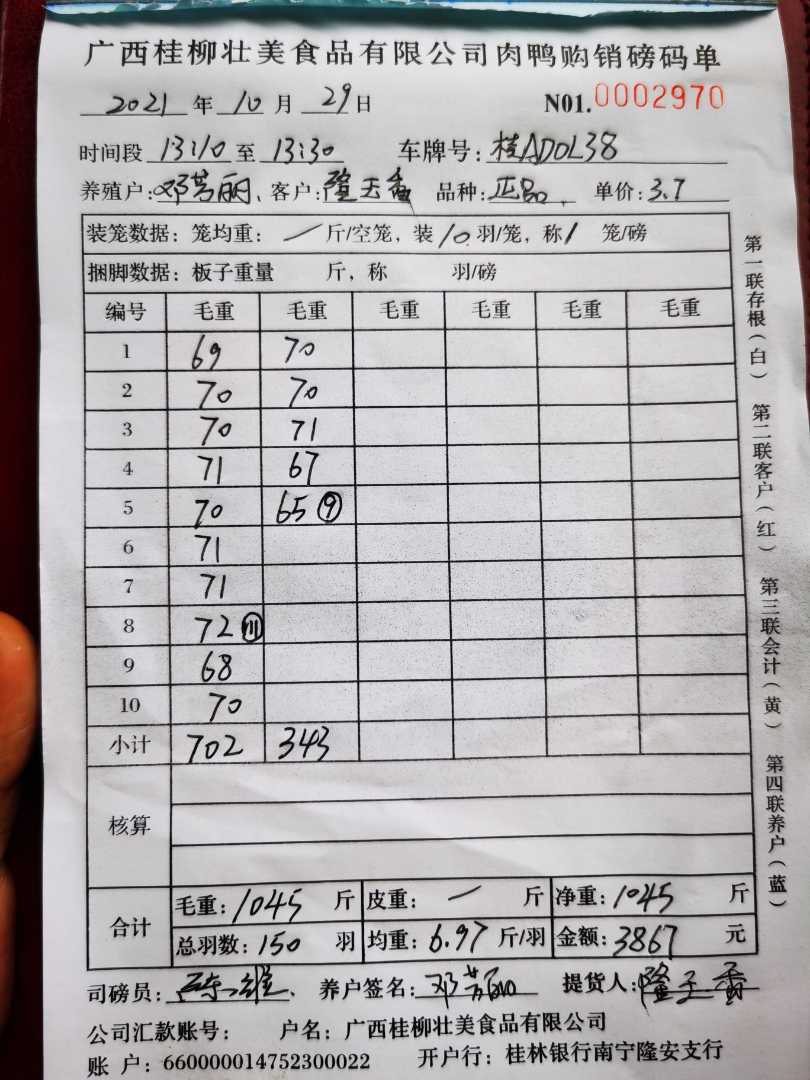 广西桂柳壮美食品有限公司肉鸭购销磅码单
2021 年 10 月 29 日 N01. 0002970
时间段 13:10 至 13:30 车牌号: 桂AD0L38
养殖户: 邓芳丽、客户: 隆玉香 品种: 正品. 单价: 3.7
装笼数据: 笼均重: / 斤/空笼, 装 10 羽/笼, 称 1 笼/磅
捆脚数据: 板子重量 斤, 称 羽/磅
编号 毛重 毛重 毛重 毛重 毛重 毛重
1 69 70
2 70 70
3 70 71
4 71 67
5 70 65 ⑨
6 71
7 71
8 72 ⑪
9 68
10 70
小计 702 343
核算
合计 毛重: 1045 斤 皮重: / 斤 净重: 1045 斤
总羽数: 150 羽 均重: 6.97 斤/羽 金额: 3867 元
司磅员: 养户签名: 邓芳丽 提货人: 隆玉香
公司汇款账号: 户名: 广西桂柳壮美食品有限公司
账 户: 660000014752300022 开户行: 桂林银行南宁隆安支行
第一联存根(白) 第二联客户(红) 第三联会计(黄) 第四联养户(蓝)